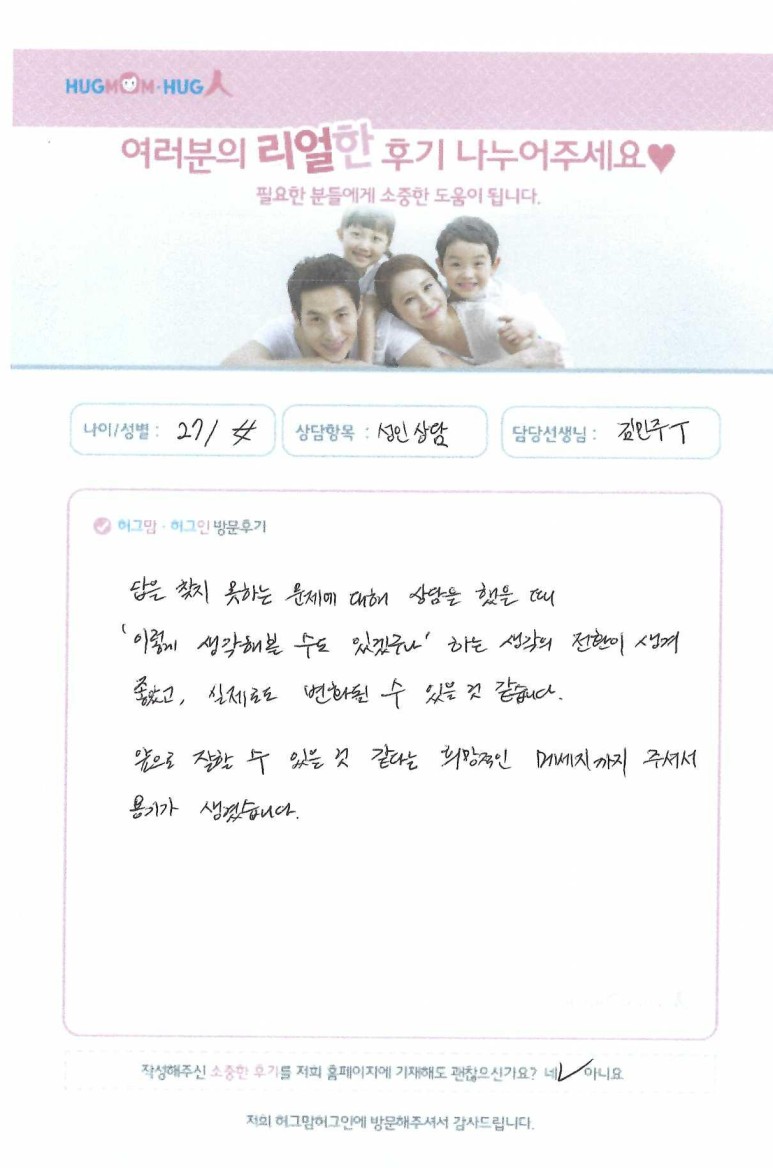 HUGMOM·HUG人
여러분의 리얼한 후기 나누어주세요♥
필요한 분들에게 소중한 도움이 됩니다.
나이/성별 : 27/ 女 상담항목 : 성인상담 담당선생님 : 김민주T
허그맘·허그인 방문후기
답을 찾지 못하는 문제에 대해 상담을 했을 때
'이렇게 생각해볼 수도 있겠구나' 하는 생각의 전환이 생겨
좋았고, 실제로도 변화될 수 있을 것 같습니다.
앞으로 잘할 수 있을 것 같다는 희망적인 메세지까지 주셔서
용기가 생겼습니다.
작성해주신 소중한 후기를 저희 홈페이지에 기재해도 괜찮으신가요? 네 ✓ 아니요
저희 허그맘허그인에 방문해주셔서 감사드립니다.